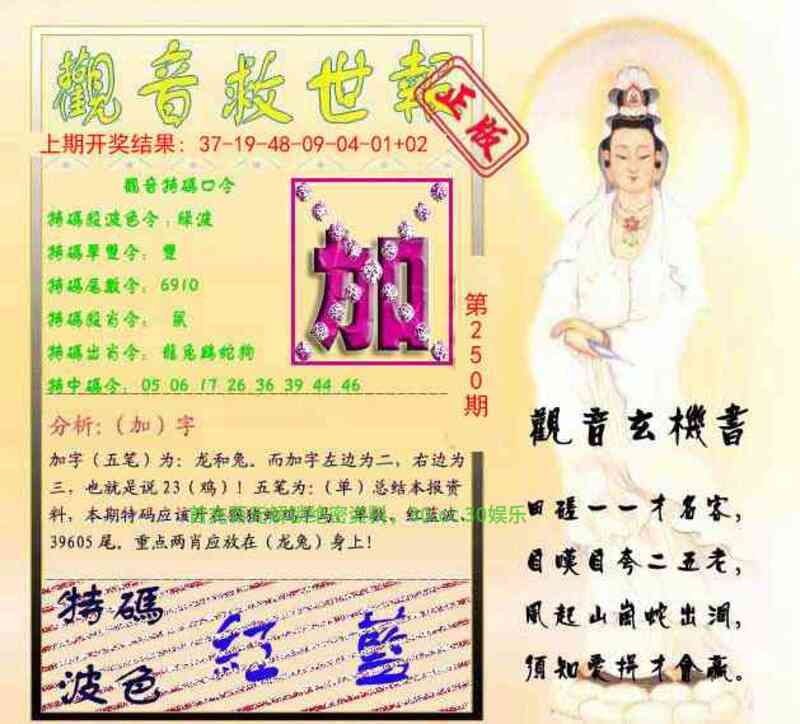 觀音救世報
正版
上期开奖结果：37-19-48-09-04-01+02
觀音特碼口令
特碼殺波色令：綠波
特碼單雙令：雙
特碼尾數令：6910
特碼殺肖令：鼠
特碼出肖令：龍兔鷄蛇狗
特中碼令：05 06 17 26 36 39 44 46
加
第250期
分析:（加）字
加字（五笔）为：龙和兔。而加字左边为二，右边为
三，也就是说 23（鸡）！五笔为：(单）总结本报资
料，本期特码应该
单数，红蓝波.
39605 尾。重点两肖应放在（龙兔）身上！
30娱乐
特碼
波色
紅 藍
觀音玄機書
田磋一一才名客，
目嘆目夸二五老，
風起山崗蛇出洞，
須知愛拼才會贏。